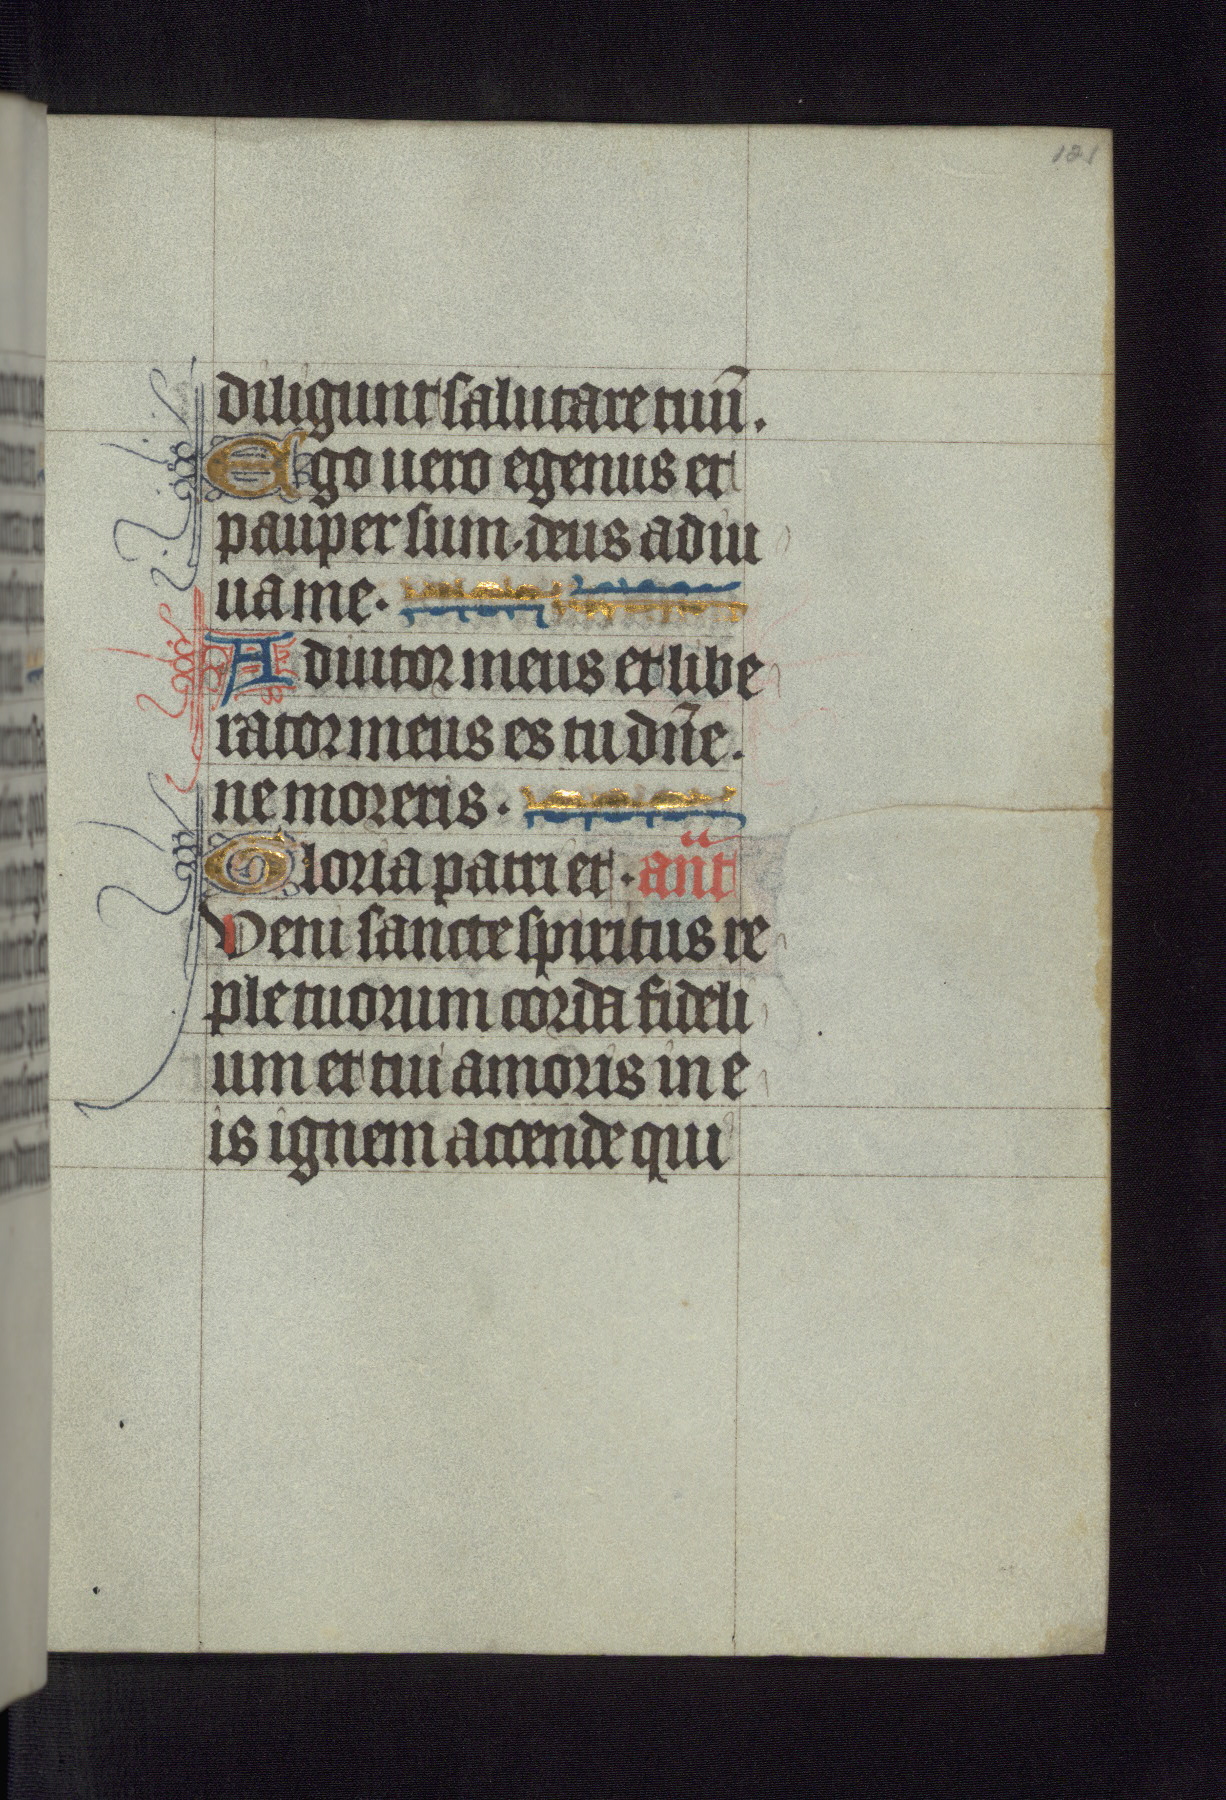 121
diligunt salutare tuū.
Ego uero egenus et
pauper sum. deus adiu
ua me.
Adiutor meus et libe
rator meus es tu dn̄e.
ne moreris.
Gloria patri et. an̄t
Veni sancte spiritus re
ple tuorum corda fideli
um et tui amoris in e
is ignem accende qui